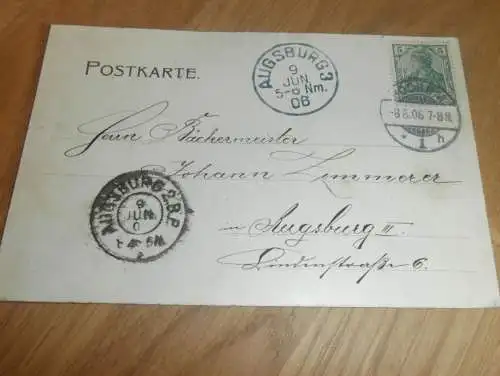 POSTKARTE.
AUGSBURG 3
9
JUN.
5-6 Nm.
06
5
5
-8 6.06 7-8 N.
* 1 h
Herrn Bäckermeister
Johann Zimmerer
in Augsburg III.
Lindenstraße 6.
AUGSBURG 2.B.P.
9
JUN